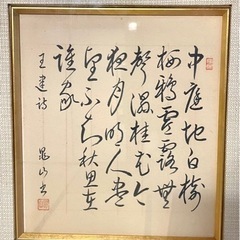 中庭地白樹
栖鴉零露無
聲濕桂花今
夜月明人盡
望不知秋思在
誰家
王建詩
山書